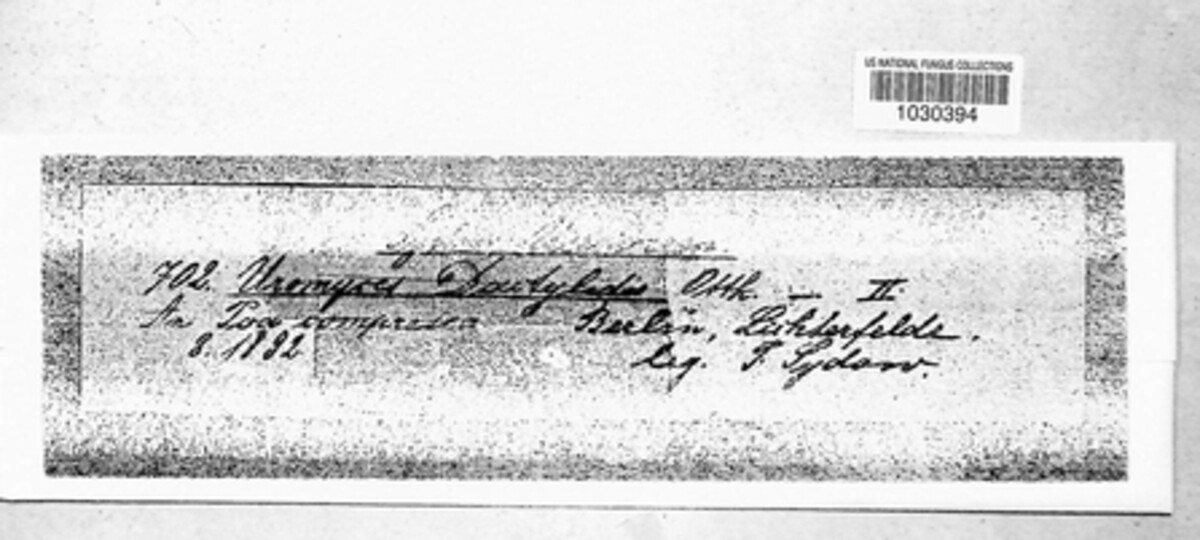 US NATIONAL FUNGUS COLLECTIONS
1030394
702. Uromyces Dactylidis Otth. — II
An Poa compressa — Berlin, Lichterfelde.
8. 1892 leg. P. Sydow.